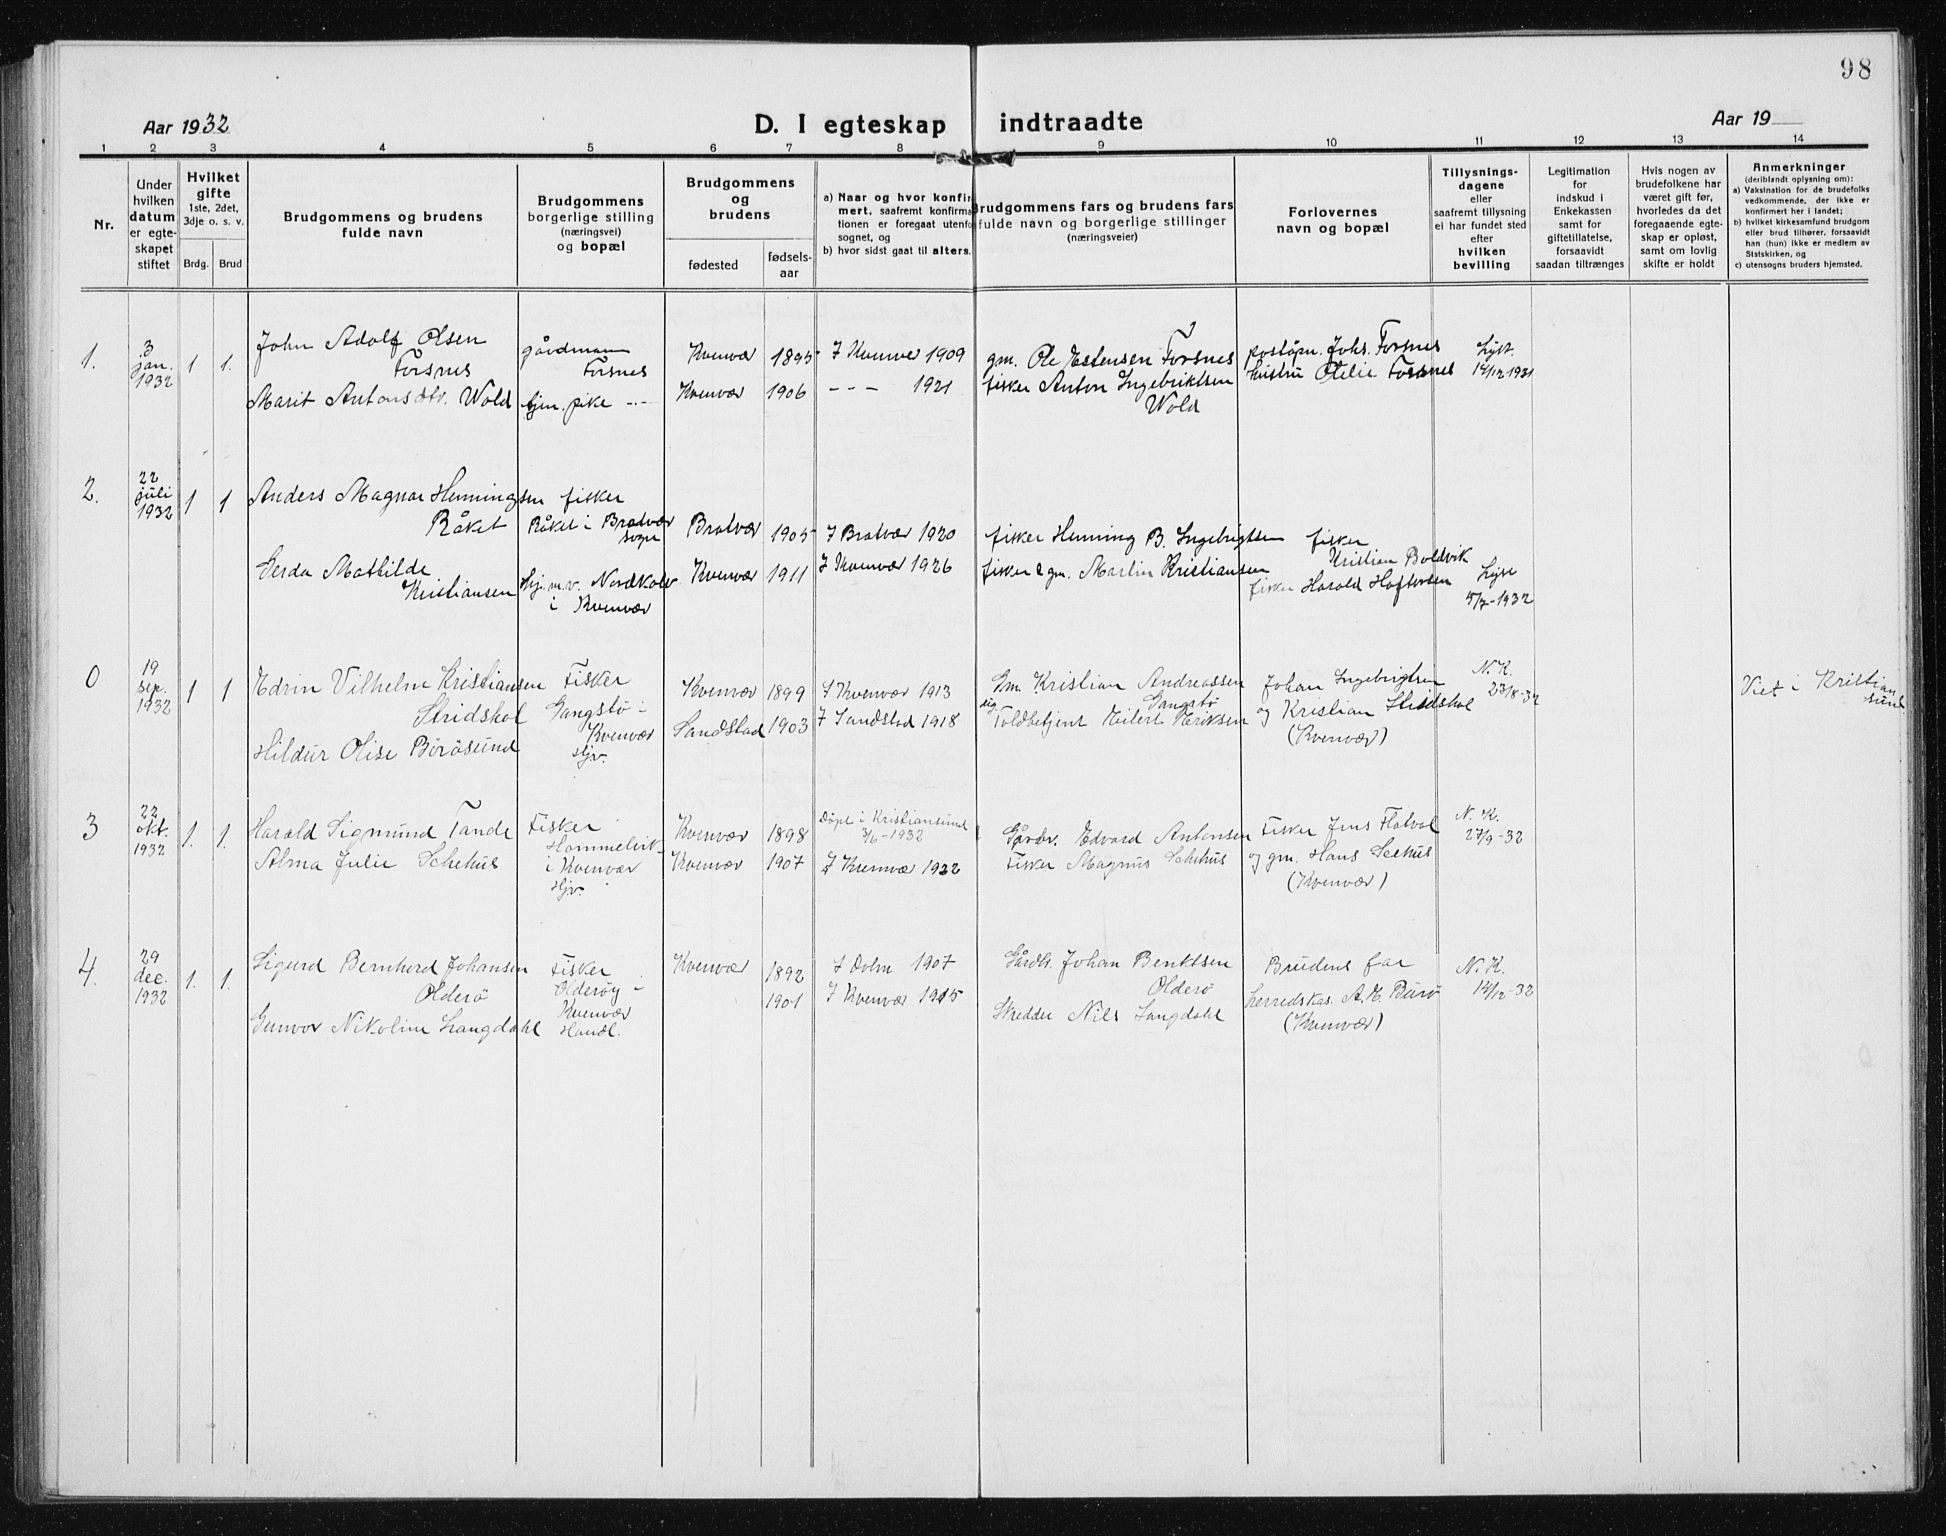 98
Aar 1932
D. I egteskap indtraadte
Aar 19
1 2 3 4 5 6 7 8 9 10 11 12 13 14
Nr.
Under
hvilken
datum
er egte-
skapet
stiftet
Hvilket
gifte
1ste, 2det,
3dje o. s. v.
Brdg. Brud
Brudgommens og brudens
fulde navn
Brudgommens
borgerlige stilling
(næringsvei)
og bopæl
Brudgommens
og
brudens
fødested
fødsels-
aar
a) Naar og hvor konfir-
mert, saafremt konfirma-
tionen er foregaat utenfo
sognet, og
b) hvor sidst gaat til alters.
Brudgommens fars og brudens fars
fulde navn og borgerlige stillinger
(næringsveier)
Forlovernes
navn og bopæl
Tillysnings-
dagene
eller
saafremt tillysning
ei har fundet sted
efter
hvilken
bevilling
Legitimation
for
indskud i
Enkekassen
samt for
giftetillatelse,
forsaavidt
saadan tiltrænges
Hvis nogen av
brudefolkene har
været gift før,
hvorledes da det
foregaaende egte-
skap er opløst,
samt om lovlig
skifte er holdt
Anmerkninger
(deriblandt oplysning om):
a) Vaksination for de brudefolks
vedkommende, der ikke er
konfirmert her i landet;
b) hvilket kirkesamfund brudgom
eller brud tilhører, forsaavidt
han (hun) ikke er medlem av
Statskirken, og
c) utensogns bruders hjemsted.
1.
3
jan.
1932
1 1.
John Adolf Olsen
Forsnes
Marit Antonsdtr. Wold
gårdmann
Forsnes
hjm. pike -"-
Kvenvær 1895
Kvenvær 1906
I Kvenvær 1909
- - - 1921
gm. Ole Estensen Forsnes
fisker Anton Ingebriktsen
Wold
postopn. Johs. Forsnes
hustru Otelie Forsnes
Lyst.
14/12 1931
2.
22
juli
1932
1 1
Anders Magnar Henningsen
Råket
Gerda Mathilde
Kristiansen
fisker
Råket i Bratvær
sogn
Hj. m. v. Nordkolv.
i Kvenvær
Bratvær 1905
Kvenvær 1911
I Bratvær 1920
I Kvenvær 1926
fisker Henning B. Ingebrigtsen
fisker & gm. Martin Kristiansen
fisker
Kristian Boldvik
fisker Harald Haftorsen
Lyst
5/7-1932
0
19
sep.
1932
1 1
Edvin Vilhelm Kristiansen
Skridshol
Hildur Olise Börösund
Fisker
Gangstö i
Kvenvær
Hjv.
Kvenvær 1899
Sandstad 1903
I Kvenvær 1913
I Sandstad 1918
Gm Kristian Andreassen
Gangstö
Toldbetjent Eilert Eriksen
Johan Ingebrigtsen
og Kristian Skridshol
(Kvenvær)
N. K.
23/8-32
Viet i Kristian
sund
3
22
okt.
1932
1. 1.
Harald Sigmund Tande
Alma Julie Sehehus
Fisker
Hammelvik
i Kvenvær
Hjv.
Kvenvær 1898
Kvenvær 1907
Döpt i Kristiansund
3/6-1932
I Kvenvær 1922
Gårdbr. Edvard Antonsen
Fisker Magnus Sehehus
Fisker Jens Flatval
og gm. Hans Seehus
(Kvenvær)
N. K.
27/9-32
4.
29
dec.
1932
1. 1.
Sigurd Bernhard Johansen
Olderö
Gunvor Nikoline Langdahl
Fisker
Olderöy i
Kvenvær
Handl.
Kvenvær 1892
1901
I Dolm 1907
I Kvenvær 1915
Gårdb. Johan Benktsen
Olderö
Skredder Nils Langdahl
Brudens far
herredskas. A. M. Burö
(Kvenvær)
N. K.
14/12-32